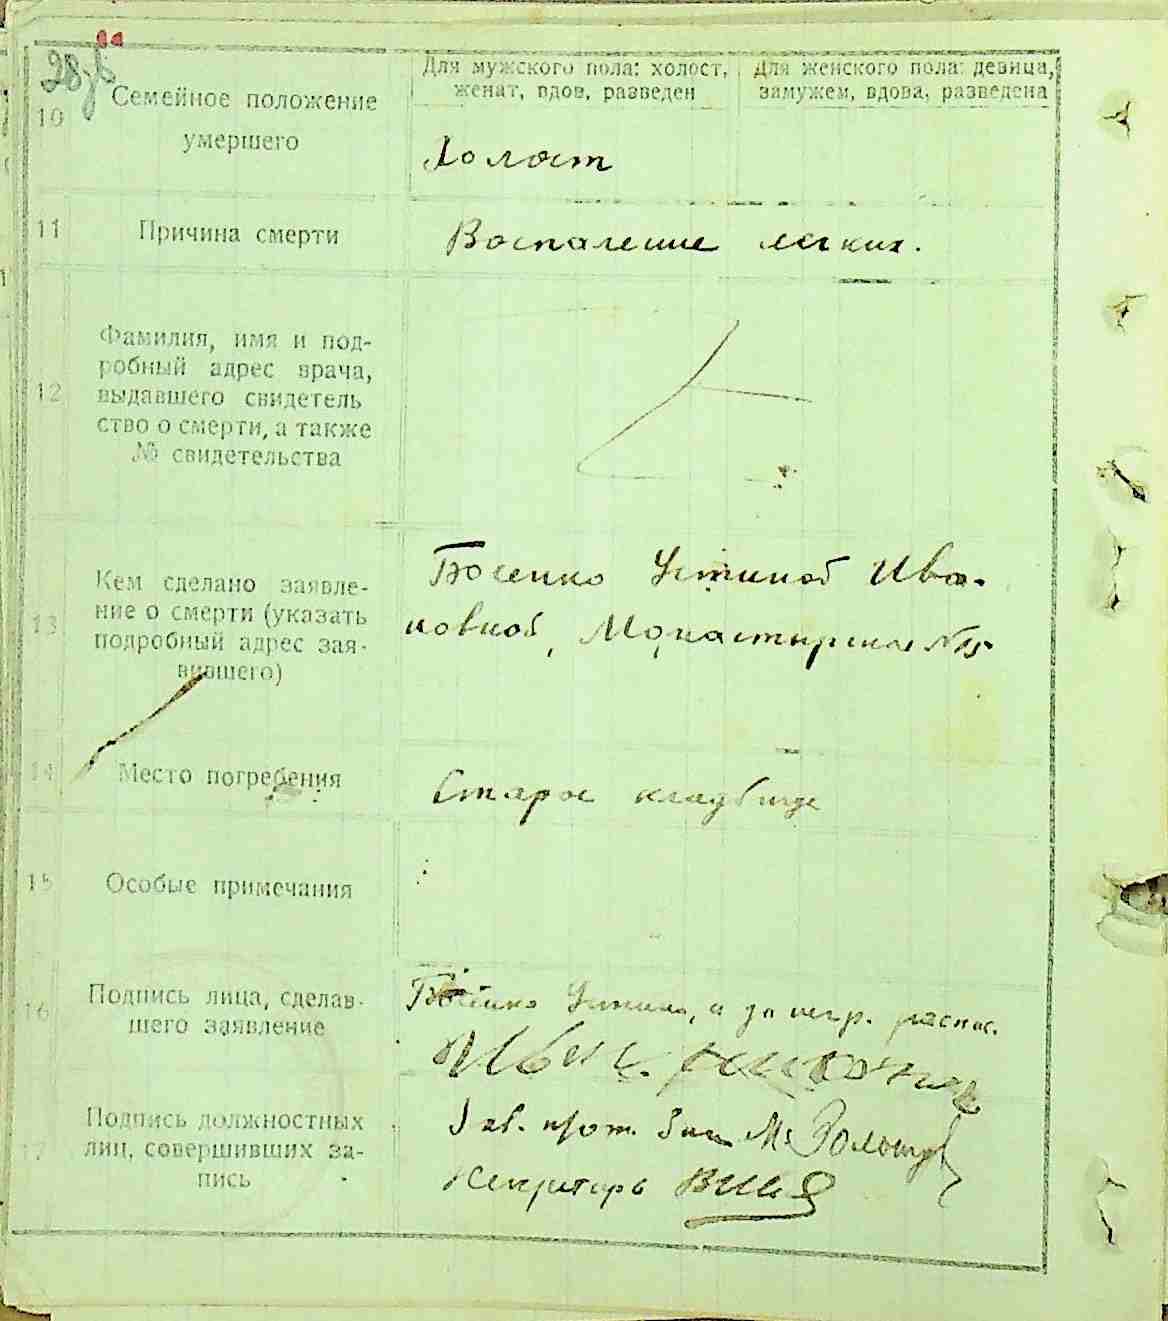 28
Для мужского пола: холост,
женат, вдов, разведен
Для женского пола: девица,
замужем, вдова, разведена
10
Семейное положение
умершего
Холост
11
Причина смерти
Воспаление легких.
12
Фамилия, имя и под-
робный адрес врача,
выдавшего свидетель
ство о смерти, а также
№ свидетельства
13
Кем сделано заявле-
ние о смерти (указать
подробный адрес зая-
вившего)
Босенко Устиной Ива-
новной, Монастырская №15
14
Место погребения
Старое кладбище
15
Особые примечания
16
Подпись лица, сделав-
шего заявление
Босенко Устина, а за негр. распис.
17
Подпись должностных
лиц, совершивших за-
пись
Зав.
Секретарь